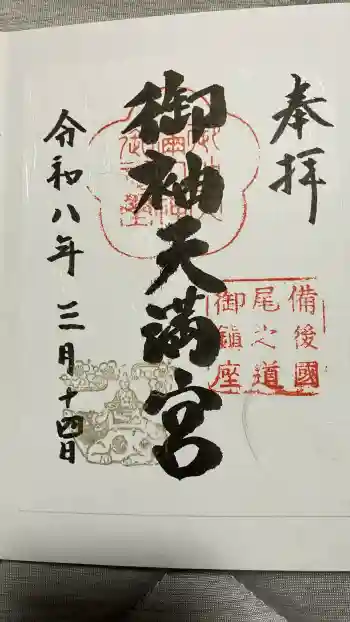 奉拝
備後國
尾之道
御鎮座
御袖天満宮
令和八年三月十四日